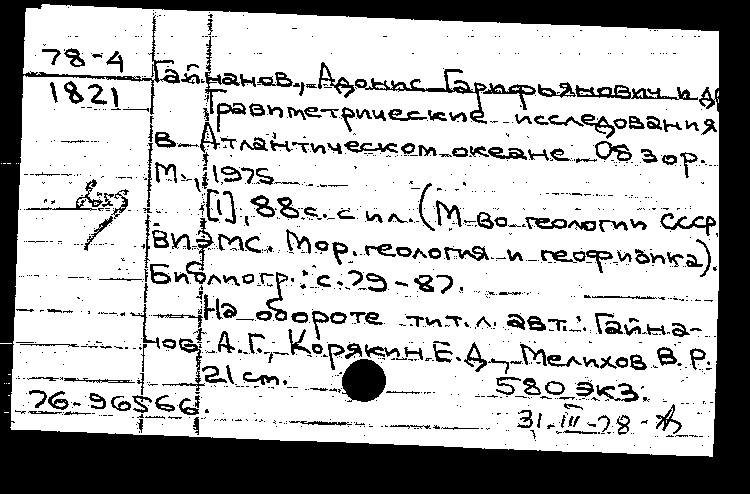 78-4
1821
Гайнанов, Адонис Гарифьянович и др
Гравиметрические исследования
в Атлантическом океане. Обзор.
М., 1975
[1], 88 с. с ил. (М-во геологии СССР.
ВИЭМС. Мор. геология и геофизика).
Библиогр.: с. 79-87.
На обороте тит. л. авт.: Гайна-
нов А.Г., Корякин Е.Д., Мелихов В.Р.
21 cm. 580 экз.
76-96566.
31-III-78-